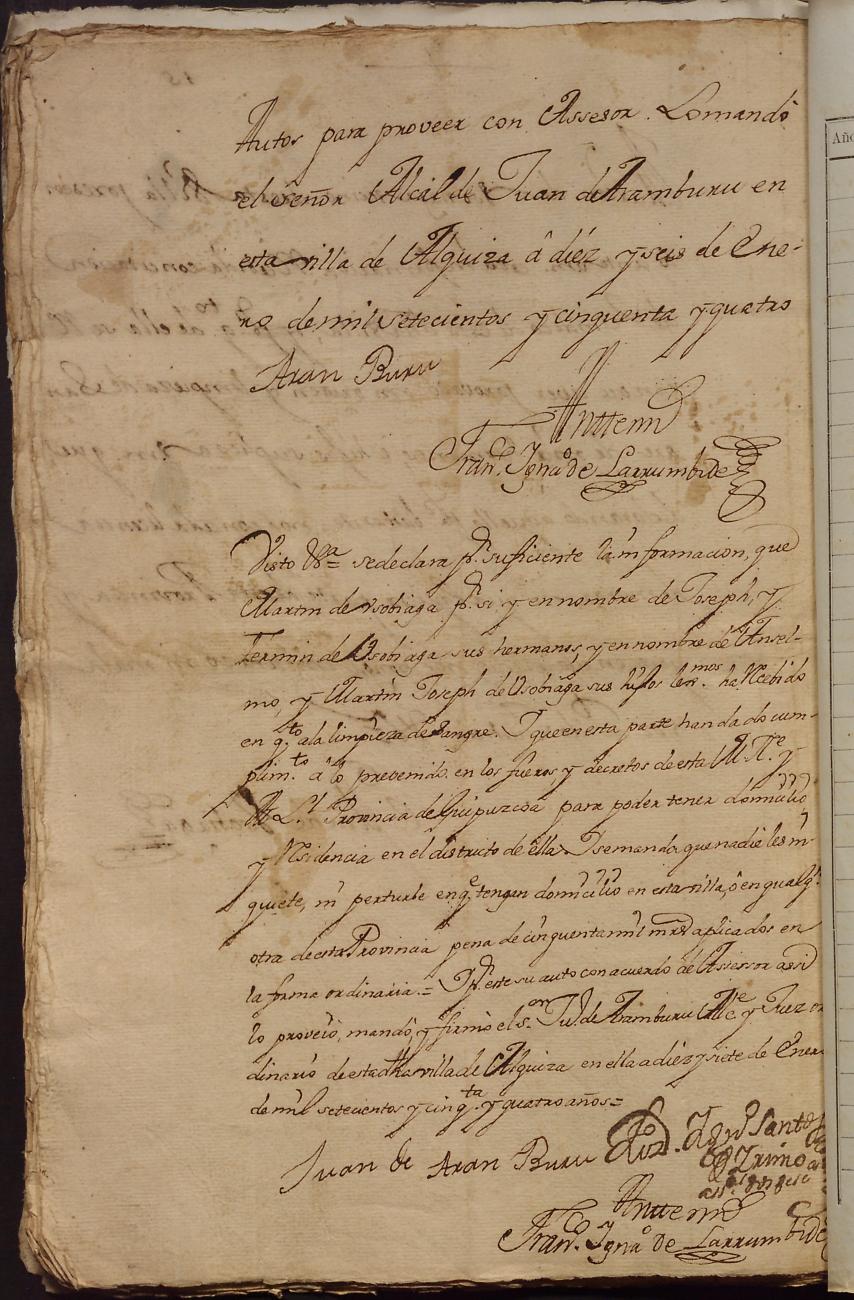 Autos para proveer con Assesor. Lomandò
el señor Alcalde Juan de Aramburu en
esta villa de Alquiza â diéz y seis de Ene-
ro de mil setecientos y cinquenta y quatro
Aran Buru
Antte mi
Fran.co Ign.o de Larrumbide
Visto &a = se declara pr. suficiente la informacion, que
Martin de Usobiaga pr. si y en nombre de Joseph, y
Fermin de Usobiaga sus hermanos, y en nombre de Ansel-
mo, y Martin Joseph de Usobiaga sus hijos lexmos. ha Recibido
en q.to ala limpieza de Sangre. Y que en esta parte han dado cum-
plim.to à lo prevenido en los fueros, y decretos de esta M. N.e y
M. L.l Provincia de Guipuzcoa para poder tener domicilio,
y Residencia en el districto de ella. Y se manda que nadie les in-
quiete, ni perturbe en q.e tengan domicilio en esta villa, ò en qualq.r
otra de esta Provincia pena de cinquenta mil mrs aplicados en
la forma ordinaria.= Y pr. este su auto con acuerdo del Asessor assi
lo proveiò, mandò, y firmò el s.or Ju.n de Aramburu Alc.e y Juez or
dinario de esta dha villa de Alquiza en ella a diéz y siete de Ener
de mil setecientos y cinq.ta y quatro años=
Juan de Aran Buru
Antte mi
Fran.co Ign.o de Larrumbide
Año